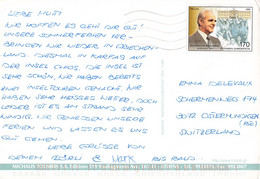 LIEBE MUTI
WIR HOFFEN ES GEHT DIR GUT!
UNSERE SOMMERFERIEN VER-
BRINGEN WIR WIEDER IN GRIECHEN-
LAND. DIESMAL IN KARFAS AUF
DER INSEL CHIOS. DIE INSEL IST
SEHR SCHÖN, WIR HABEN BEREITS
EINE INSELTOUREN GEMACHT. WIR
HABEN SEHR HEISSES WETTER, DOCH
LEIDER IST ES AM STRAND SEHR
WINDIG. WIR GENIESSEN UNSERE
FERIEN UND LASSEN ES UNS
GUT GEHEN.
LIEBE GRÜSSE VON
DEINEM & MARK
170
EMMA DELEVAUX
SCHERMENWEG 174
3072 OSTERMUNDIGEN
(BE)
SWITZERLAND
MICHALIS TOUMBIS S.A.